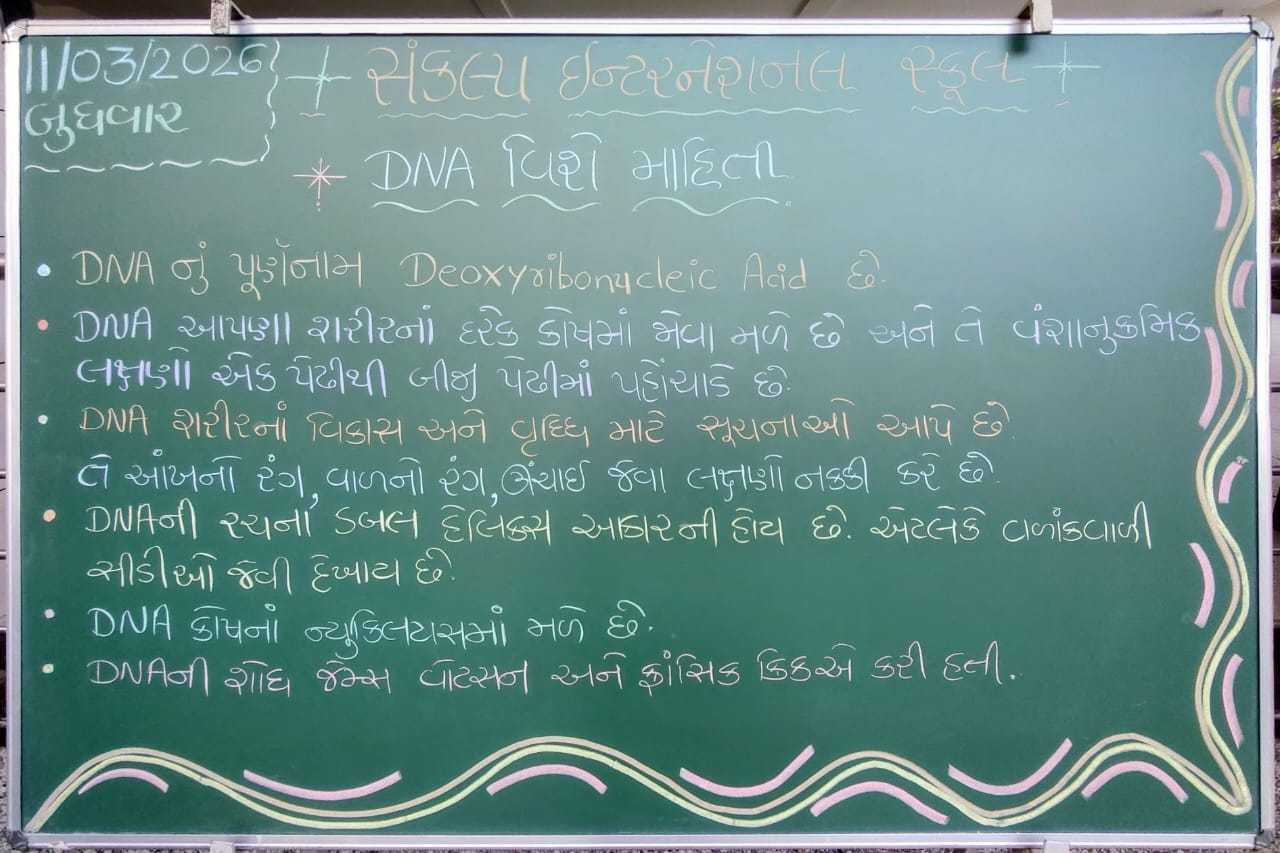 11/03/2026
બુધવાર
સંકલ્પ ઈન્ટરનેશનલ સ્કૂલ
DNA વિશે માહિતી
• DNA નું પૂર્ણનામ Deoxyribonucleic Acid છે.
• DNA આપણા શરીરનાં દરેક કોષમાં જોવા મળે છે અને તે વંશાનુક્રમિક
લક્ષણો એક પેઢીથી બીજી પેઢીમાં પહોંચાડે છે.
• DNA શરીરનાં વિકાસ અને વૃધ્ધિ માટે સૂચનાઓ આપે છે.
તે આંખનો રંગ, વાળનો રંગ, ઊંચાઈ જેવા લક્ષણો નક્કી કરે છે.
• DNAની રચના ડબલ હેલિક્સ આકારની હોય છે. એટલેકે વળાંકવાળી
સીડીઓ જેવી દેખાય છે.
• DNA કોષનાં ન્યુક્લિટાસમાં મળે છે.
• DNAની શોધ જેમ્સ વોટસન અને ફ્રાંસિક ક્રિકએ કરી હતી.